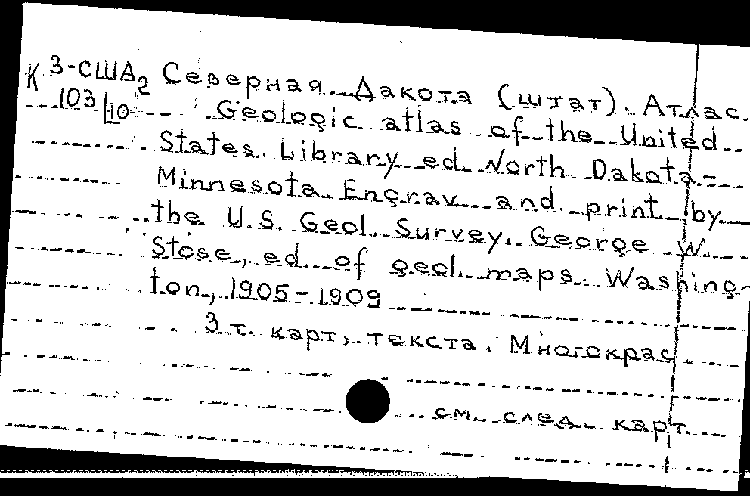 К 3-США2 Северная Дакота (штат). Атлас.
103/10 Geologic atlas of the United
States. Library ed. North Dakota-
Minnesota. Engrav. and print by
the U.S. Geol. Survey. George W.
Stose, ed. of geol. maps. Washing-
ton, 1905-1909
3 т. карт, текста. Многокрас
см. след. карт